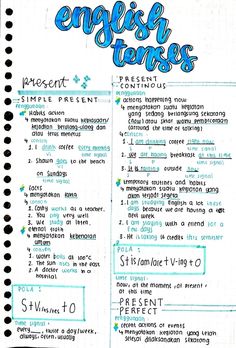 english
tenses
present
SIMPLE PRESENT
penggunaan
habits action
menyatakan suatu kebiasaan/
kejadian berulang-ulang dan
atau terus menerus
contoh :
1. I drink coffee every morning
time signal
2. Shawn goes to the beach
on sundays
time signal
facts
menyatakan kebenaran
1. Cathy works as a teacher.
2. You play very well
3. We study at
eternal truth
menyatakan kebenaran
umum
1. Water boils at 100°c
2. The sun rises in the east.
3. A doctor works in a
hospital.
POLA :
S + V + O
time signal :
every..., twice a day/week,
always, often, usually
PRESENT
CONTINOUS
penggunaan
actions happening now
menyatakan suatu kejadian
yang sedang berlangsung sekarang
(around the time of talking)
contoh :
1. I am drinking coffee right now
time signal
2. We are having breakfast at this time
time signal
3. It is raining outside now
temporary routines and habits
menyatakan suatu kejadian yang
akan terjadi
1. I am studying english a lot these
days because we are having a test
next week.
2. I am staying with a friend for a
few days.
POLA :
S + is/am/are + V-ing + O
time signal :
now, at the moment, at present,
at this time
PRESENT
PERFECT
penggunaan
recent actions or events
menyatakan kejadian yang telah
selesai dilaksanakan sekarang